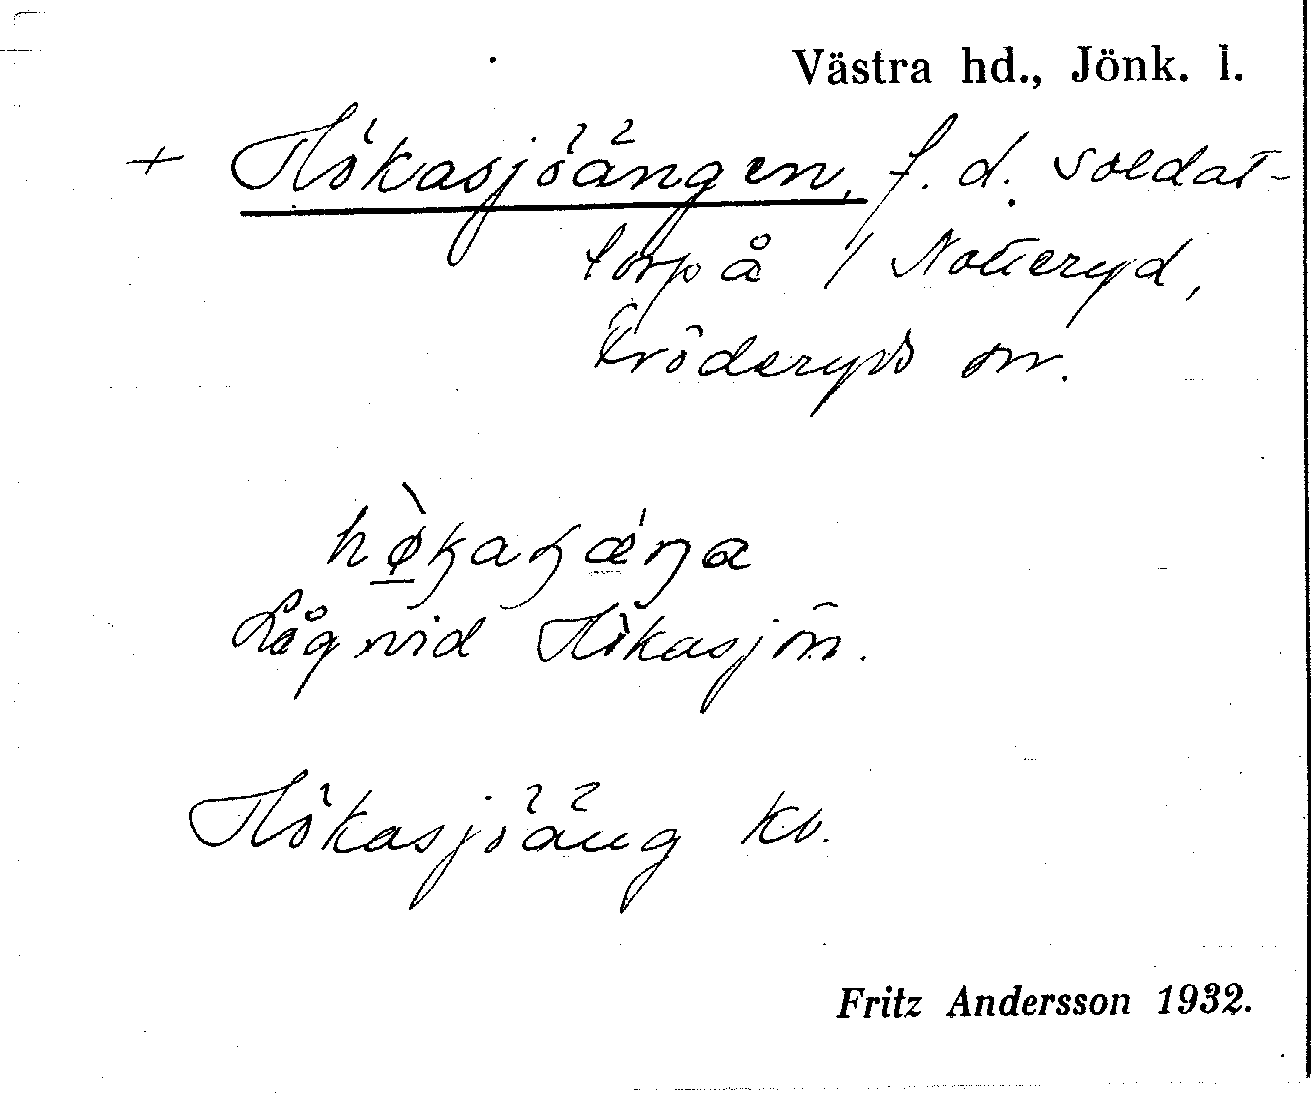 Västra hd., Jönk. l.
+ Hökasjöängen, f. d. soldat-
torp å / Notteryd,
Bröderyds sn.
hø̀kaɧæ´ŋa
Låg vid Hökasjön.
Hökasjöäng kv.
Fritz Andersson 1932.